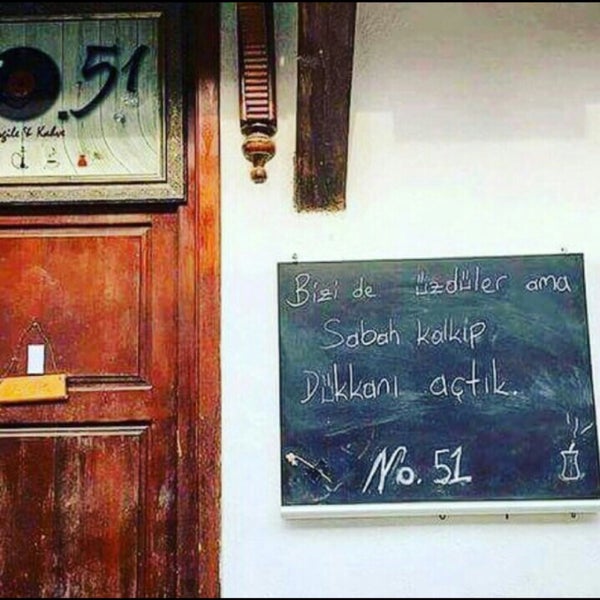 51
& Kahve
Bizi de üzdüler ama
Sabah kalkıp
Dükkanı açtık.
No. 51